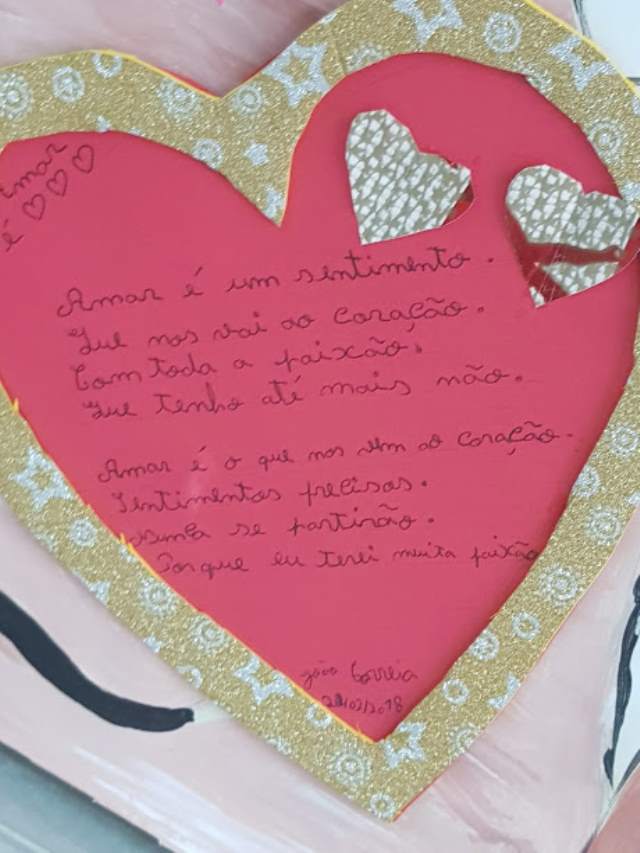 Amar
é
Amar é um sentimento.
Que nos vai ao coração.
Com toda a paixão.
Que tenho até mais não.
Amar é o que nos vem ao coração.
Sentimentos precisos.
nunca se partirão.
Porque eu terei muita paixão
João Correia
/02/2018